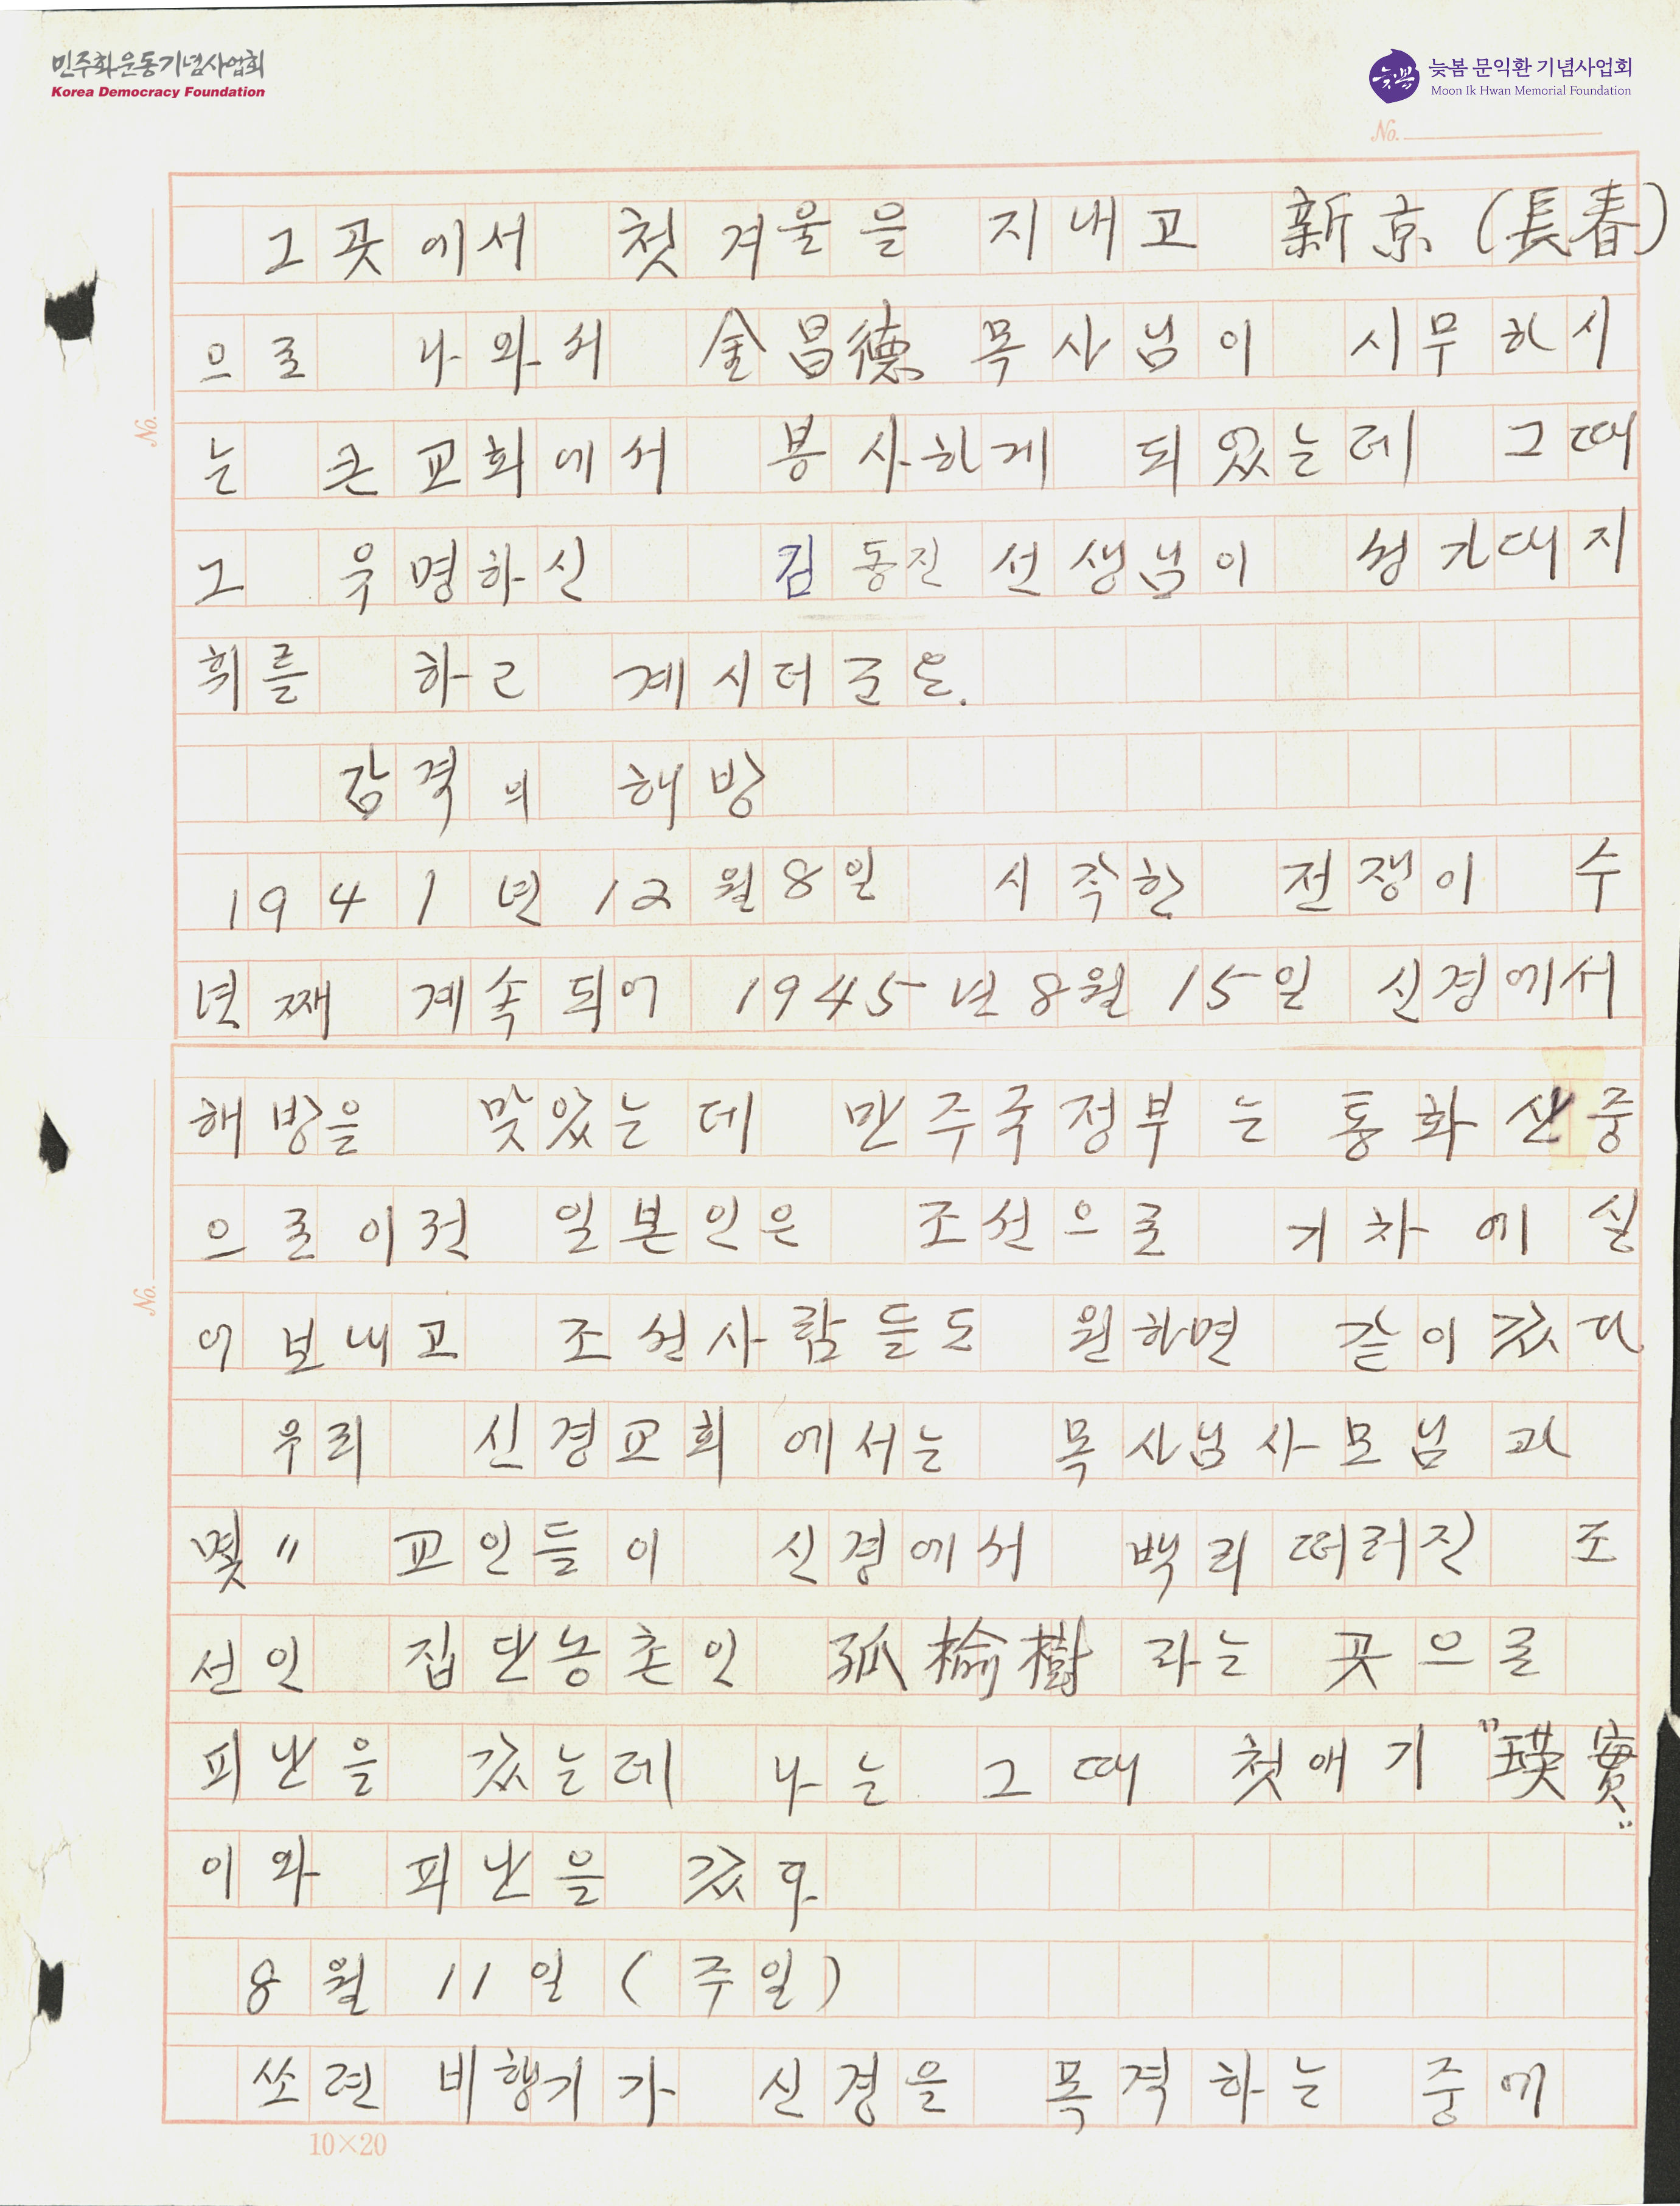 민주화운동기념사업회
Korea Democracy Foundation
늦봄 문익환 기념사업회
Moon Ik Hwan Memorial Foundation
No.
그곳에서 첫겨울을 지내고 新京(長春)
으로 나와서 金昌德 목사님이 시무하시
No.
는 큰교회에서 봉사하게 되었는데 그때
그 우명하신 김동진선생님이 성가대지
휘를 하고 계시더군요.
감격의 해방
1941년 12월8일 시작한 전쟁이 수
년째 계속되어 1945년8월15일 신경에서
해방을 맞았는데 만주국정부는 통화산중
으로이전 일본인은 조선으로 기차에실
No.
어보내고 조선사람들도 원하면 같이갔다
우리 신경교회에서는 목사님사모님과
몇〃 교인들이 신경에서 백리떠러진 조
선인 집단농촌인 孤楡樹라는 곳으로
피난을 갔는데 나는 그때 첫애기 "瑛實"
이와 피난을 갔다
8월 11일(주일)
쏘련 비행기가 신경을 목격하는 중에
10×20